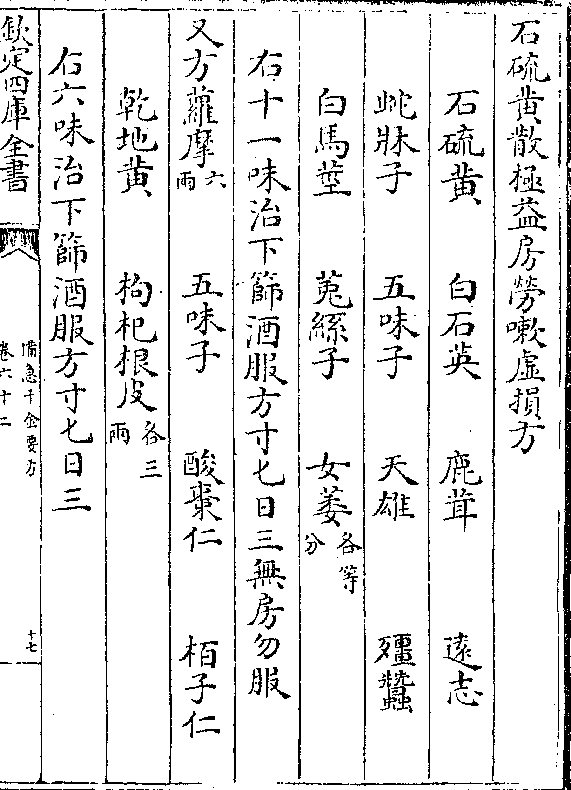 石硫黄散極益房勞嗽虛損方
石硫黄　白石英　鹿茸　遠志
蛇牀子　五味子　天雄　殭蠶
白馬莖　莵絲子　女萎各等分
右十一味治下篩酒服方寸匕日三無房勿服
又方蘿摩六兩　五味子　酸棗仁　栢子仁
乾地黄　枸杞根皮各三兩
右六味治下篩酒服方寸匕日三
欽定四庫全書
備急千金要方
卷六十二
十七